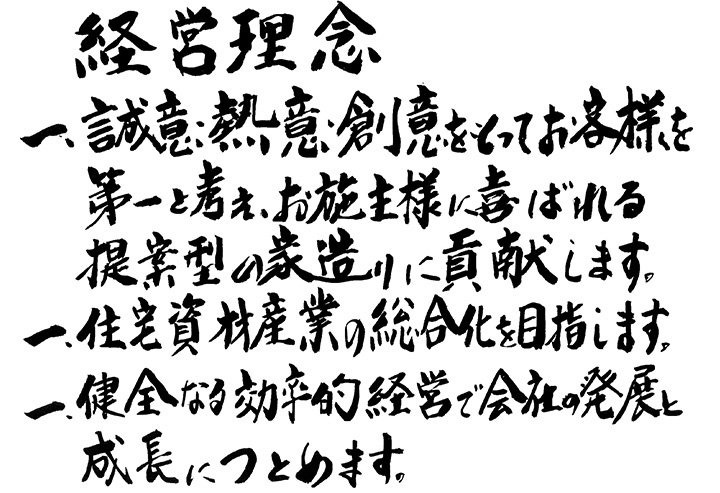 経営理念
一、誠意・熱意・創意をもってお客様を
第一と考え、お施主様に喜ばれる
提案型の家造りに貢献します。
一、住宅資材産業の総合化を目指します。
一、健全なる効率的経営で会社の発展と
成長につとめます。